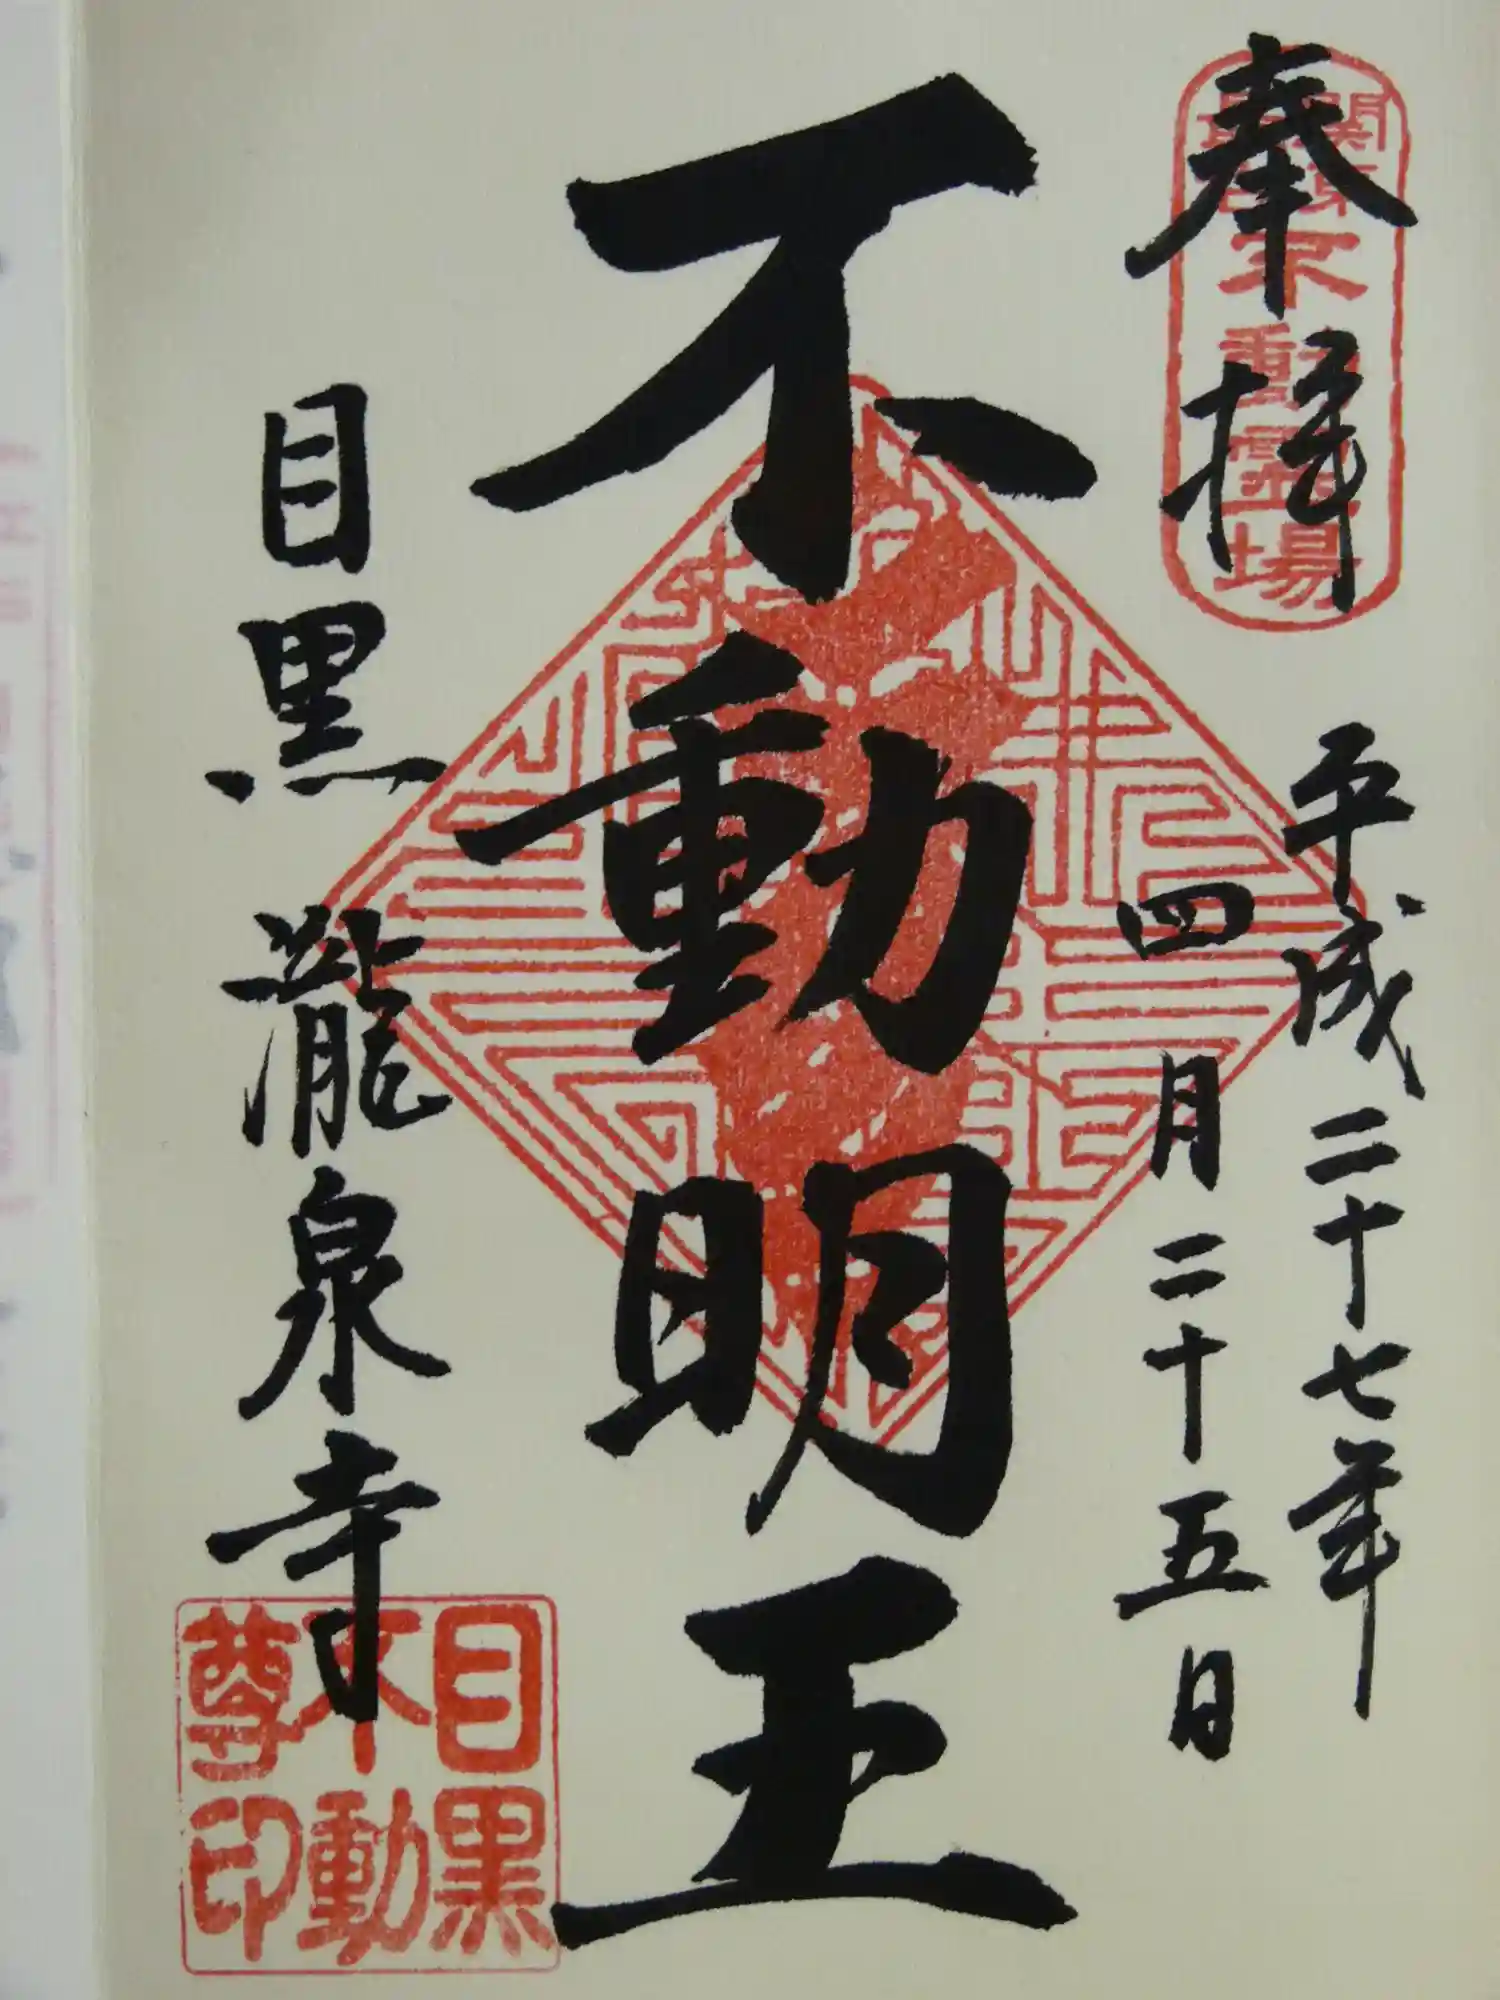 奉拝
關東最古不動霊場
平成二十七年
四月二十五日
不動明王
目黒 瀧泉寺
目黒
不動
尊印